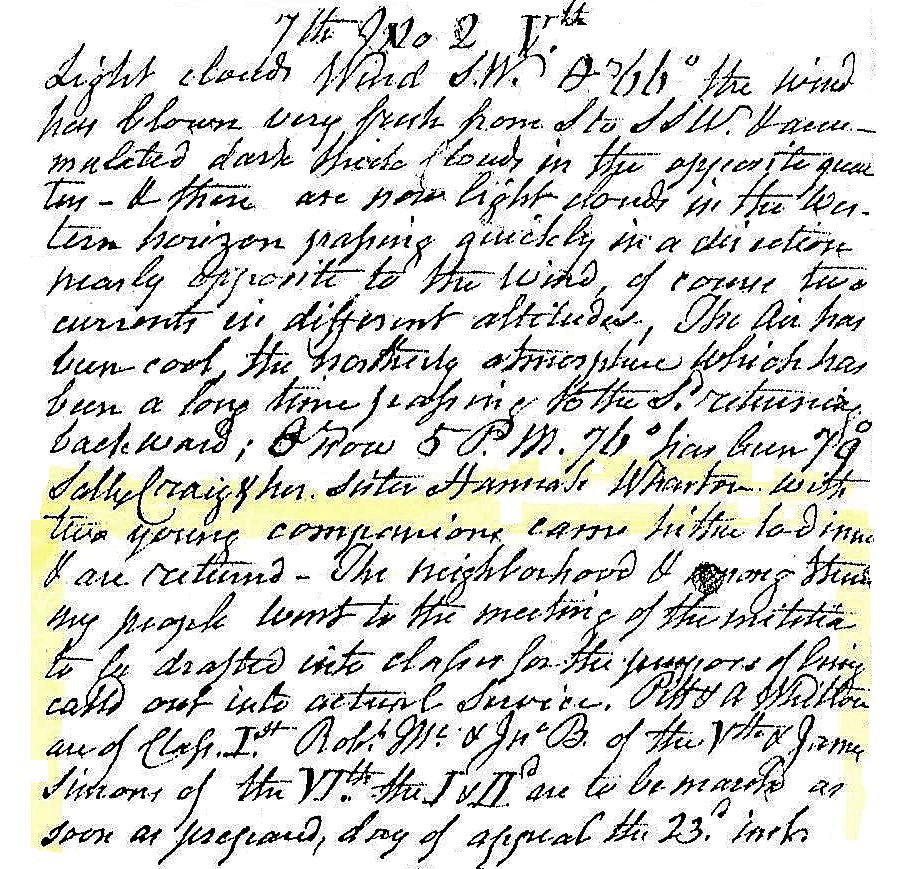 7th Mo 2 Vth
Light clouds Wind S.W. & 66° the wind
has blown very fresh from S to SSW. & accu-
mulated dark thick clouds in the opposite quar
ters - & there are now light clouds in the Wes-
tern horizon passing quickly in a direction
nearly opposite to the wind, of course two
currents in different altitudes, The Air has
been cool, the northerly atmosphere which has
been a long time passing to the Sd. returning
backward; & now 5 P.M. 76° has been 79°
Sally Craig & her Sister Hannah Wharton with
two young companions came hither to dinner
& are returnd - The neighborhood & among them
my people went to the meeting of the militia
to be drafted into classes for the purpose of being
calld out into actual Service. Pitt & A Whitlow
are of Class. Ist Robt. Mc. & Jno B. of the Vth & James
Simons of the VIth. the I & IId are to be marchd as
soon as prepared, day of appeal the 23.d inst.